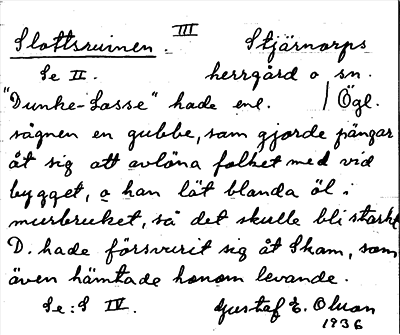 III
Slottsruinen. Stjärnorps
Se II. herrgård o sn.
"Dunke-Lasse" hade enl. / Ögl.
sägnen en gubbe, som gjorde pängar
åt sig att avlöna folket med vid
bygget, o han lät blanda öl i
murbruket, så det skulle bli starkt
D. hade försvurit sig åt Sham, som
även hämtade honom levande.
Se: S IV. Gustaf E. Olson
1936